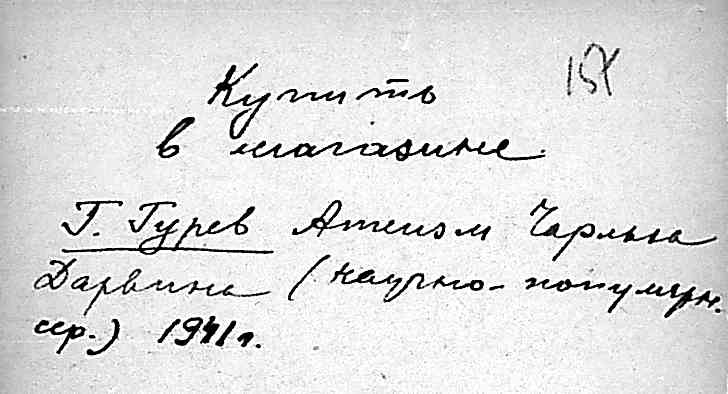 Купить
в магазине
Г. Гурев Атеизм Чарльза
Дарвина (научно-популярн.
сер.) 1941 г.